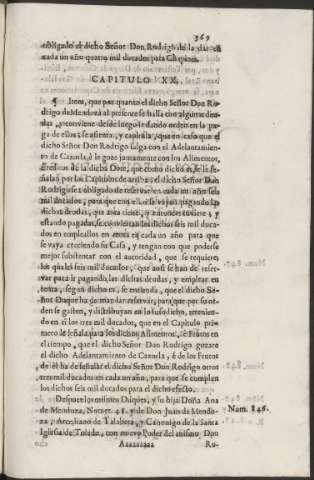 369
obligado el dicho Señor Don Rodrigo de la dar en
cada un año quatro mil ducados para Chapines.
CAPITULO XX.
¶ Item, que por quanto el dicho Señor Don Ro-
drigo de Mendoza al presente se halla con algunas deu-
das, y conviene desde luego dar orden en la pa-
ga de ellas; se asienta, y capitula, que en caso que el
dicho Señor Don Rodrigo salga con el Adelantamien-
to de Cazorla, ò le goze juntamente con los Alimentos,
è reditos de la dicha Dote, que como dicho es, se le se-
ñalan por los Capitulos de arriba: el dicho Señor Don
Rodrigo sea obligado de reservar en cada un año seis
mil ducados, para que con ellos se vayan pagando las
dichas deudas, que assi tiene, y adelante tuviere; y
estando pagadas, se conviertan los dichos seis mil duca-
dos en emplearlos en renta en cada un año para que
se vaya creciendo su Casa, y tengan con que poderse
mejor substentar con el autoridad, que se requiere;
los quales seis mil ducados, que assi se han de reser-
var para ir pagando las dichas deudas, y emplear en
renta, segun dicho es, se entienda, que el dicho Se-
ñor Duque ha de mandar reservar, para que por su or-
den se gasten, y distribuyan en lo susodicho, entenien-
do en sí los tres mil ducados, que en el Capitulo pri-
mero se señala para los dichos Alimentos, è Frutos en
el tiempo, que el dicho Señor Don Rodrigo gozare
el dicho Adelantamiento de Cazorla, è de los Frutos
de él ha de señalar el dicho Señor Don Rodrigo otros
tres mil ducados en cada un año, para que se cumplan
los dichos seis mil ducados para el dicho efecto.
Despues los mismos Duques, y su hija Doña Ana
de Mendoza, Not. 48. y de Don Juan de Mendo-
za; Arcediano de Talabera, y Canonigo de la Santa
Iglesia de Toledo, con nuevo Poder del mismo Don
Num. 846.
Aaaaaaaa
Ro-